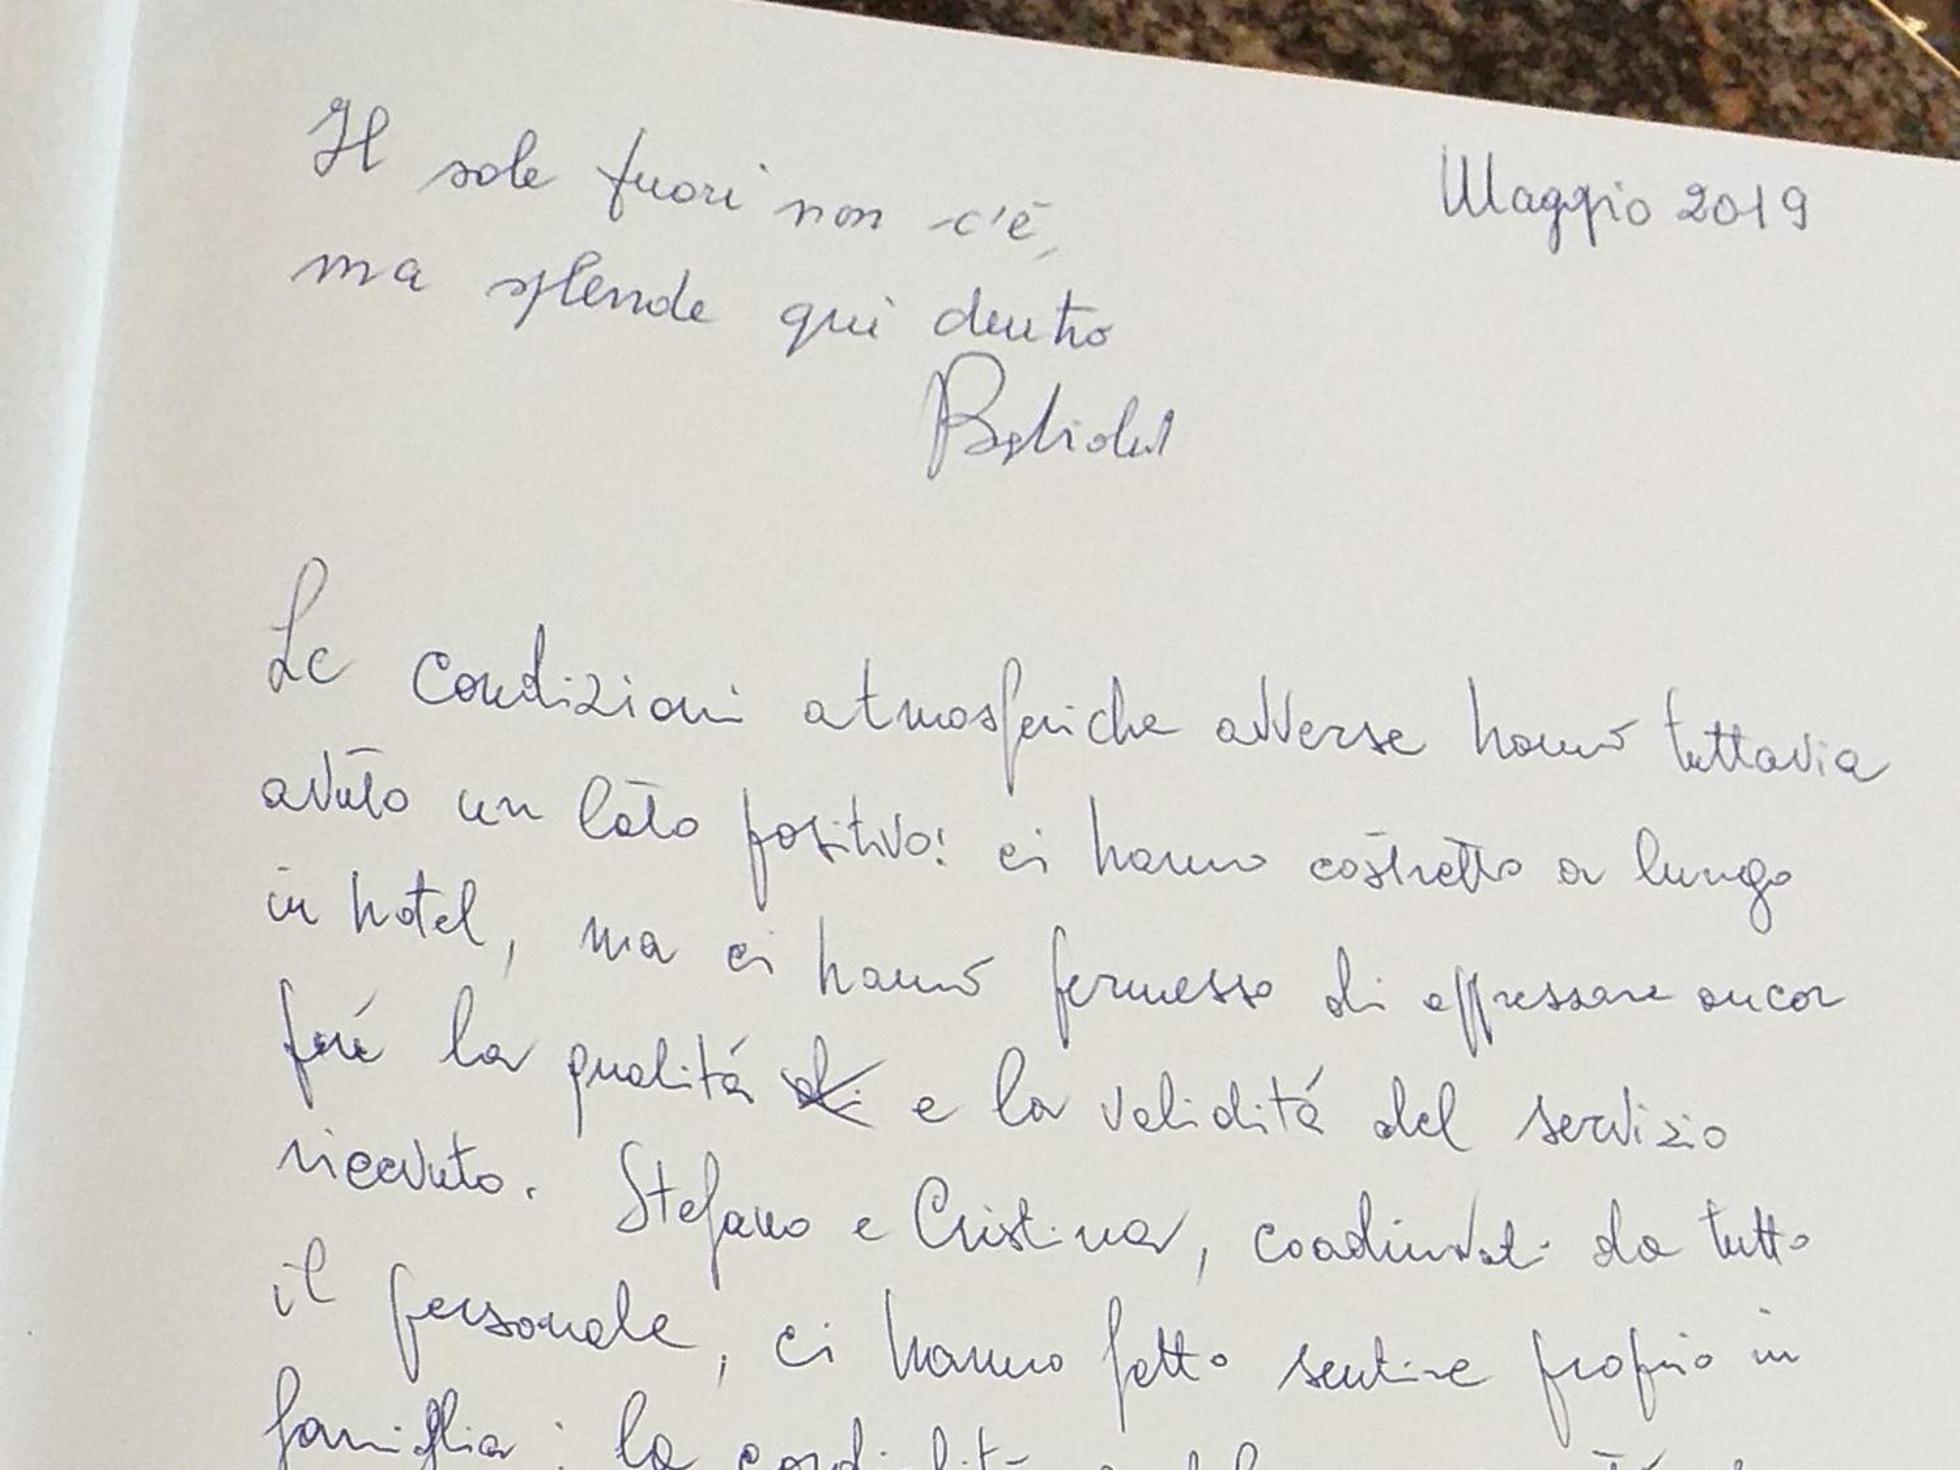 Il sole fuori non c'è,
Maggio 2019
ma splende qui dentro
Le condizioni atmosferiche avverse hanno tuttavia
avuto un lato positivo: ci hanno costretto a lungo
in hotel, ma ci hanno permesso di appressare ancor
più la qualità e la validità del servizio
ricevuto. Stefano e Cristina, coadiuvati da tutto
il personale, ci hanno fatto sentire proprio in
famiglia: la cordialità